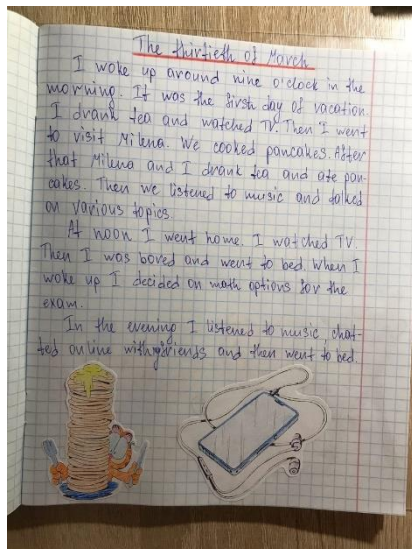 The thirtieth of March
I woke up around nine o'clock in the
morning. It was the first day of vacation.
I drank tea and watched TV. Then I went
to visit Milena. We cooked pancakes. After
that Milena and I drank tea and ate pan-
cakes. Then we listened to music and talked
on various topics.
At noon I went home. I watched TV.
Then I was bored and went to bed. When I
woke up I decided on math options for the
exam.
In the evening I listened to music, chat-
ted online with friends and then went to bed.